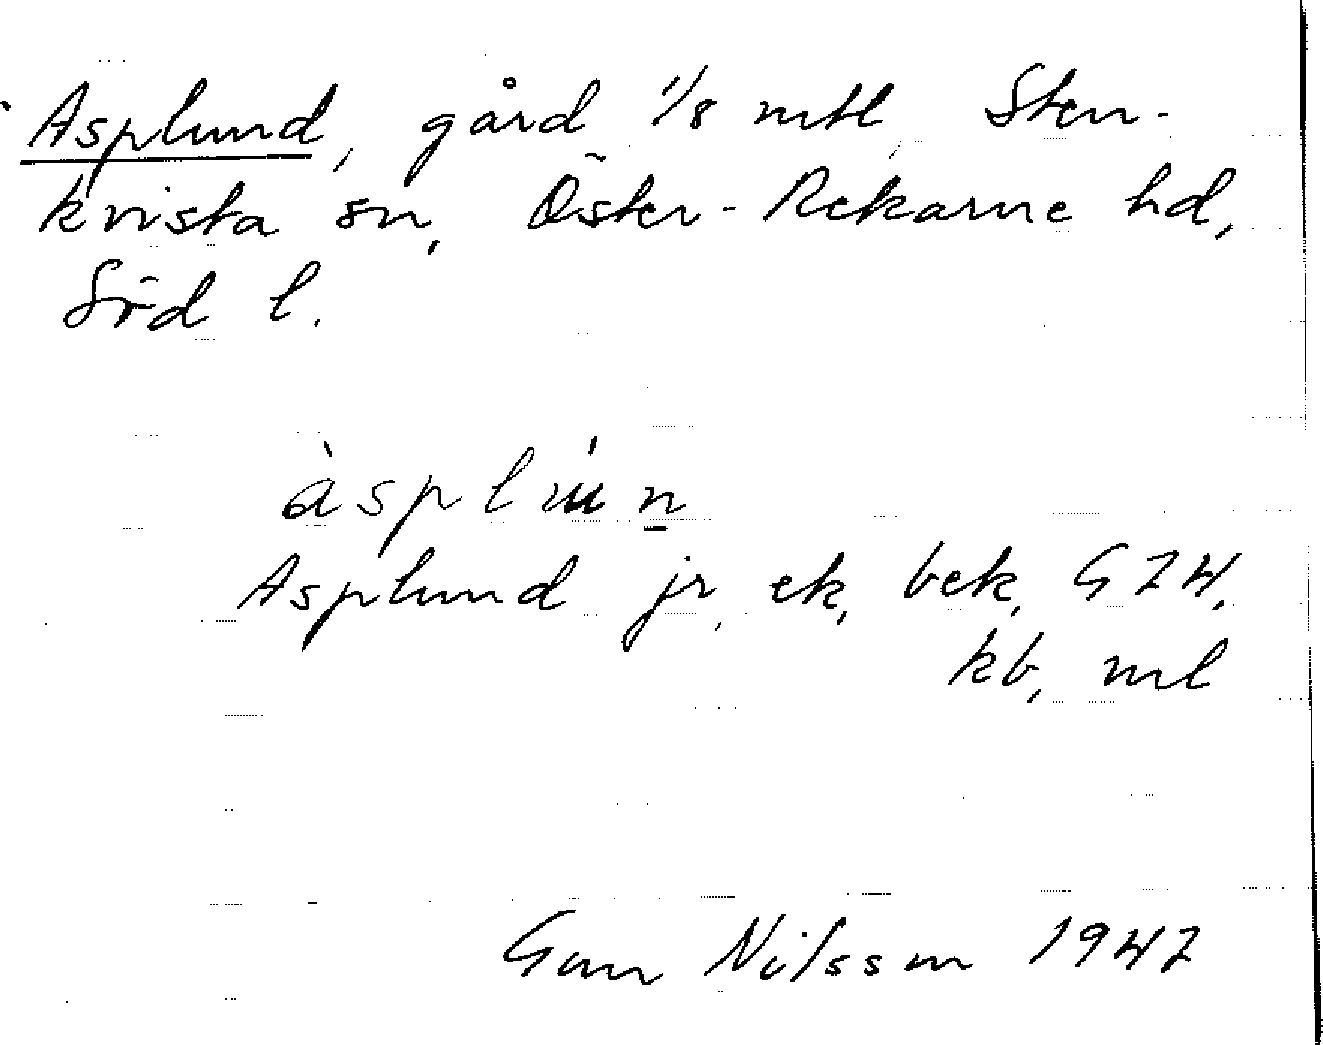 Asplund, gård 1/8 mtl, Sten-
kvista sn, Öster-Rekarne hd,
Söd l.
àsplún
Asplund jr, ek, bek, GEK,
kb, ml
Gun Nilsson 1947